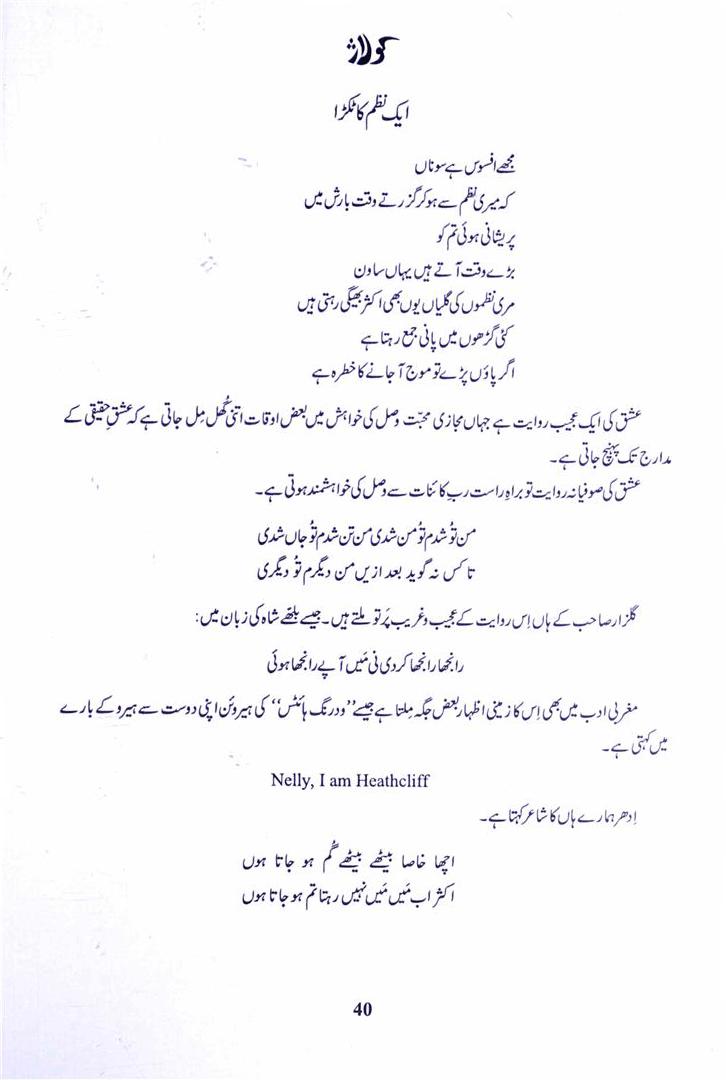 کولاژ
ایک نظم کا ٹکڑا
مجھے افسوس ہے سوناں
کہ میری نظم سے ہو کر گزرتے وقت بارش میں
پریشانی ہوئی تم کو
بڑے وقت آتے ہیں یہاں ساون
مری نظموں کی گلیاں یوں بھی اکثر بھیگی رہتی ہیں
کئی گڑھوں میں پانی جمع رہتا ہے
اگر پاؤں پڑے تو موج آ جانے کا خطرہ ہے
عشق کی ایک عجیب روایت ہے جہاں مجازی محبّت وصل کی خواہش میں بعض اوقات اتنی گُھل مِل جاتی ہے کہ عشقِ حقیقی کے
مدارج تک پہنچ جاتی ہے۔
عشق کی صوفیانہ روایت تو براہِ راست ربِ کائنات سے وصل کی خواہشمند ہوتی ہے۔
من تُو شدم تُو من شدی من تن شدم تُو جاں شدی
تا کس نہ گوید بعد ازیں من دیگرم تُو دیگری
گلزار صاحب کے ہاں اِس روایت کے عجیب و غریب پَرتو ملتے ہیں۔ جیسے بلّھے شاہ کی زبان میں:
رانجھا رانجھا کردی نی مَیں آپے رانجھا ہوئی
مغربی ادب میں بھی اِس کا زمینی اظہار بعض جگہ مِلتا ہے جیسے ”ودرنگ ہائٹس“ کی ہیروئن اپنی دوست سے ہیرو کے بارے
میں کہتی ہے۔
Nelly, I am Heathcliff
اِدھر ہمارے ہاں کا شاعر کہتا ہے۔
اچھا خاصا بیٹھے بیٹھے گُم ہو جاتا ہوں
اکثر اب مَیں مَیں نہیں رہتا تم ہو جاتا ہوں
40